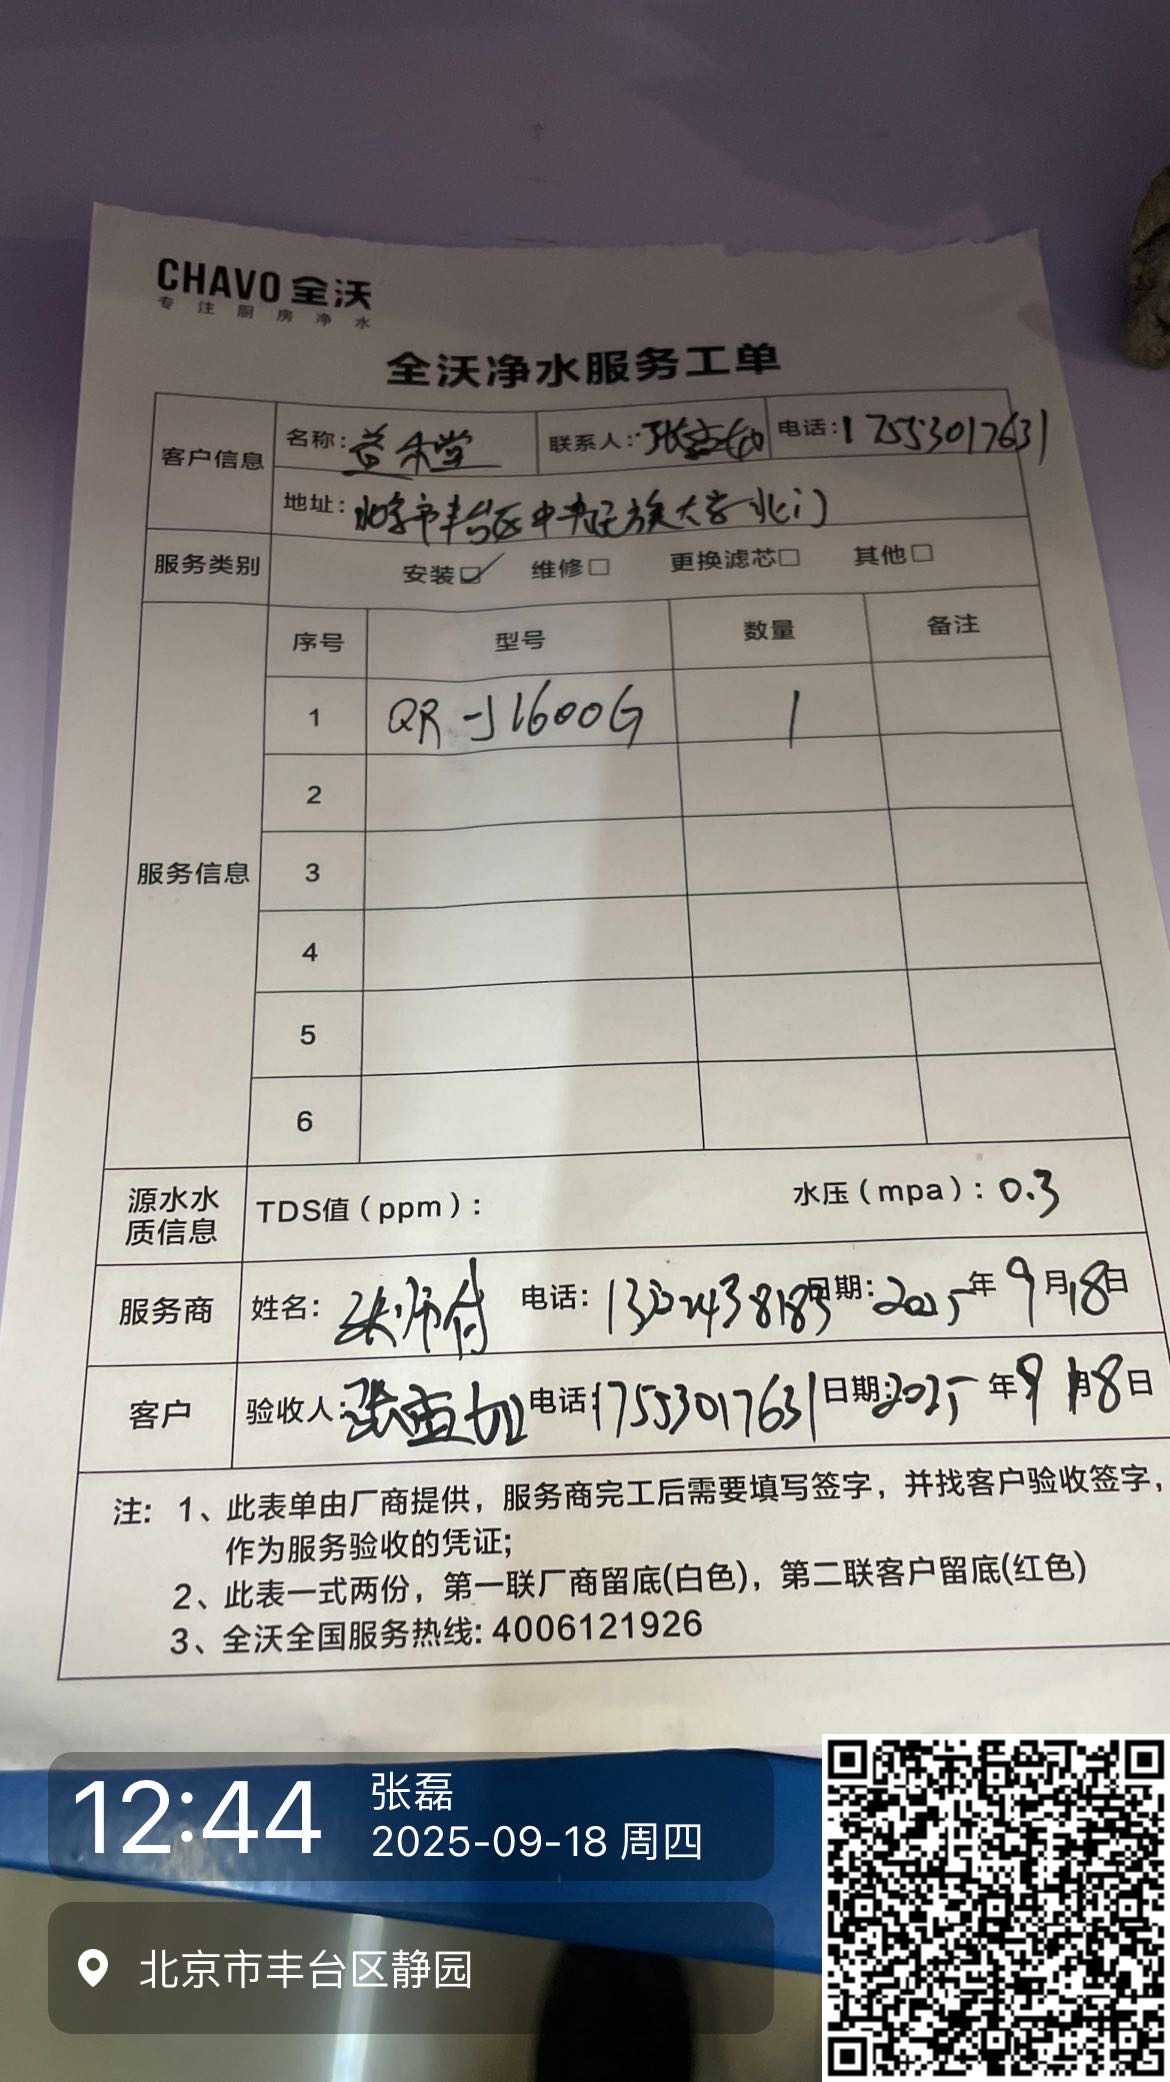 CHAVO 全沃
专注厨房净水
全沃净水服务工单
客户信息 名称: 益禾堂 联系人: 张孟 电话: 17553017631
地址: 北京市丰台区中央民族大学北门
服务类别 安装☑ 维修☐ 更换滤芯☐ 其他☐
服务信息 序号 型号 数量 备注
1 QR-J1600G 1
2
3
4
5
6
源水水质信息 TDS值(ppm): 水压(mpa): 0.3
服务商 姓名: 张师付 电话: 日期: 2025年9月18日
客户 验收人: 张孟 电话: 17553017631 日期: 2025年9月18日
注: 1、此表单由厂商提供，服务商完工后需要填写签字，并找客户验收签字，
作为服务验收的凭证;
2、此表一式两份，第一联厂商留底(白色)，第二联客户留底(红色)
3、全沃全国服务热线: 4006121926
12:44
张磊
2025-09-18 周四
北京市丰台区静园